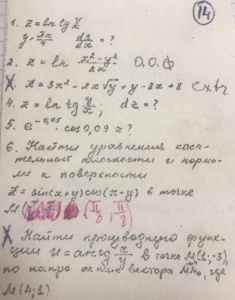 14
1. z = ln tg y/x
y = πx/4 dz/dx = ?
2. z = ln (x²-y²)/2x О.О.Ф
X. z = 3x² - 2x√y + y - 8x + 8 extr
4. z = ln tg y/x; dz = ?
5. e^-0,05 · cos 0,09 ≈ ?
6. Найти уравнения каса-
тельной плоскости и норма-
ли к поверхности
z = sin(x+y)cos(x-y) в точке
M (π/6, π/8)
X Найти производную функ-
ции u = arctg x/y в точке M(1;-3)
по вектора MM₀, где
M(4;1)